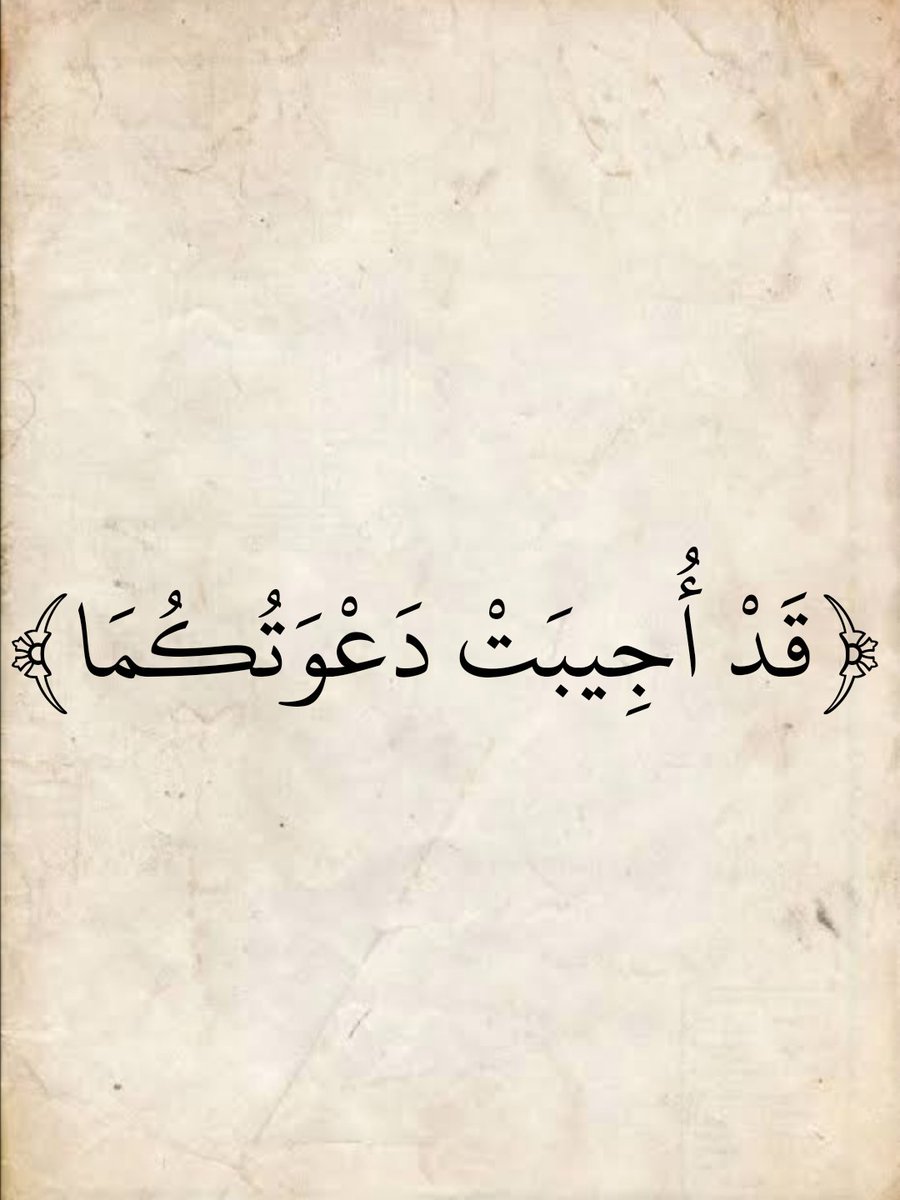 ﴿قَدْ أُجِيبَتْ دَعْوَتُكُمَا﴾